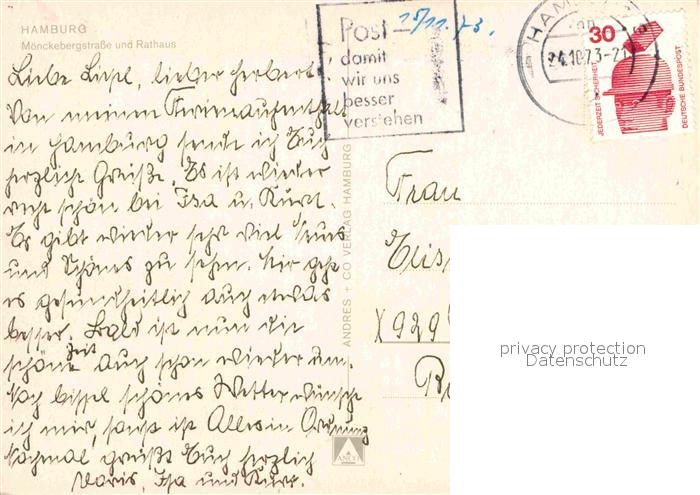 HAMBURG
Mönckebergstraße und Rathaus
Liebe Liesl, lieber Herbert!
Von meinem Ferienaufenthalt
in Hamburg sende ich Euch
herzliche Grüße. Es ist wieder
recht schön bei Isa u. Kurt.
Es gibt wieder sehr viel Neues
und Schönes zu sehen. Mir geht
es gesundheitlich auch etwas
besser. Bald ist nun die
schöne Zeit auch schon wieder um.
Noch bissel schönes Wetter wünsche
ich mir, sonst ist Alles in Ordnung
Nochmal grüßt Euch herzlich
Doris, Isa und Kurt.
ANDRES + CO VERLAG HAMBURG
ANCO
15/11.73.
Post-
damit
wir uns
besser
verstehen
HAMBURG
24.10.73-21
30
JEDERZEIT SICHERHEIT
DEUTSCHE BUNDESPOST
Frau
Elis
X929
privacy protection
Datenschutz